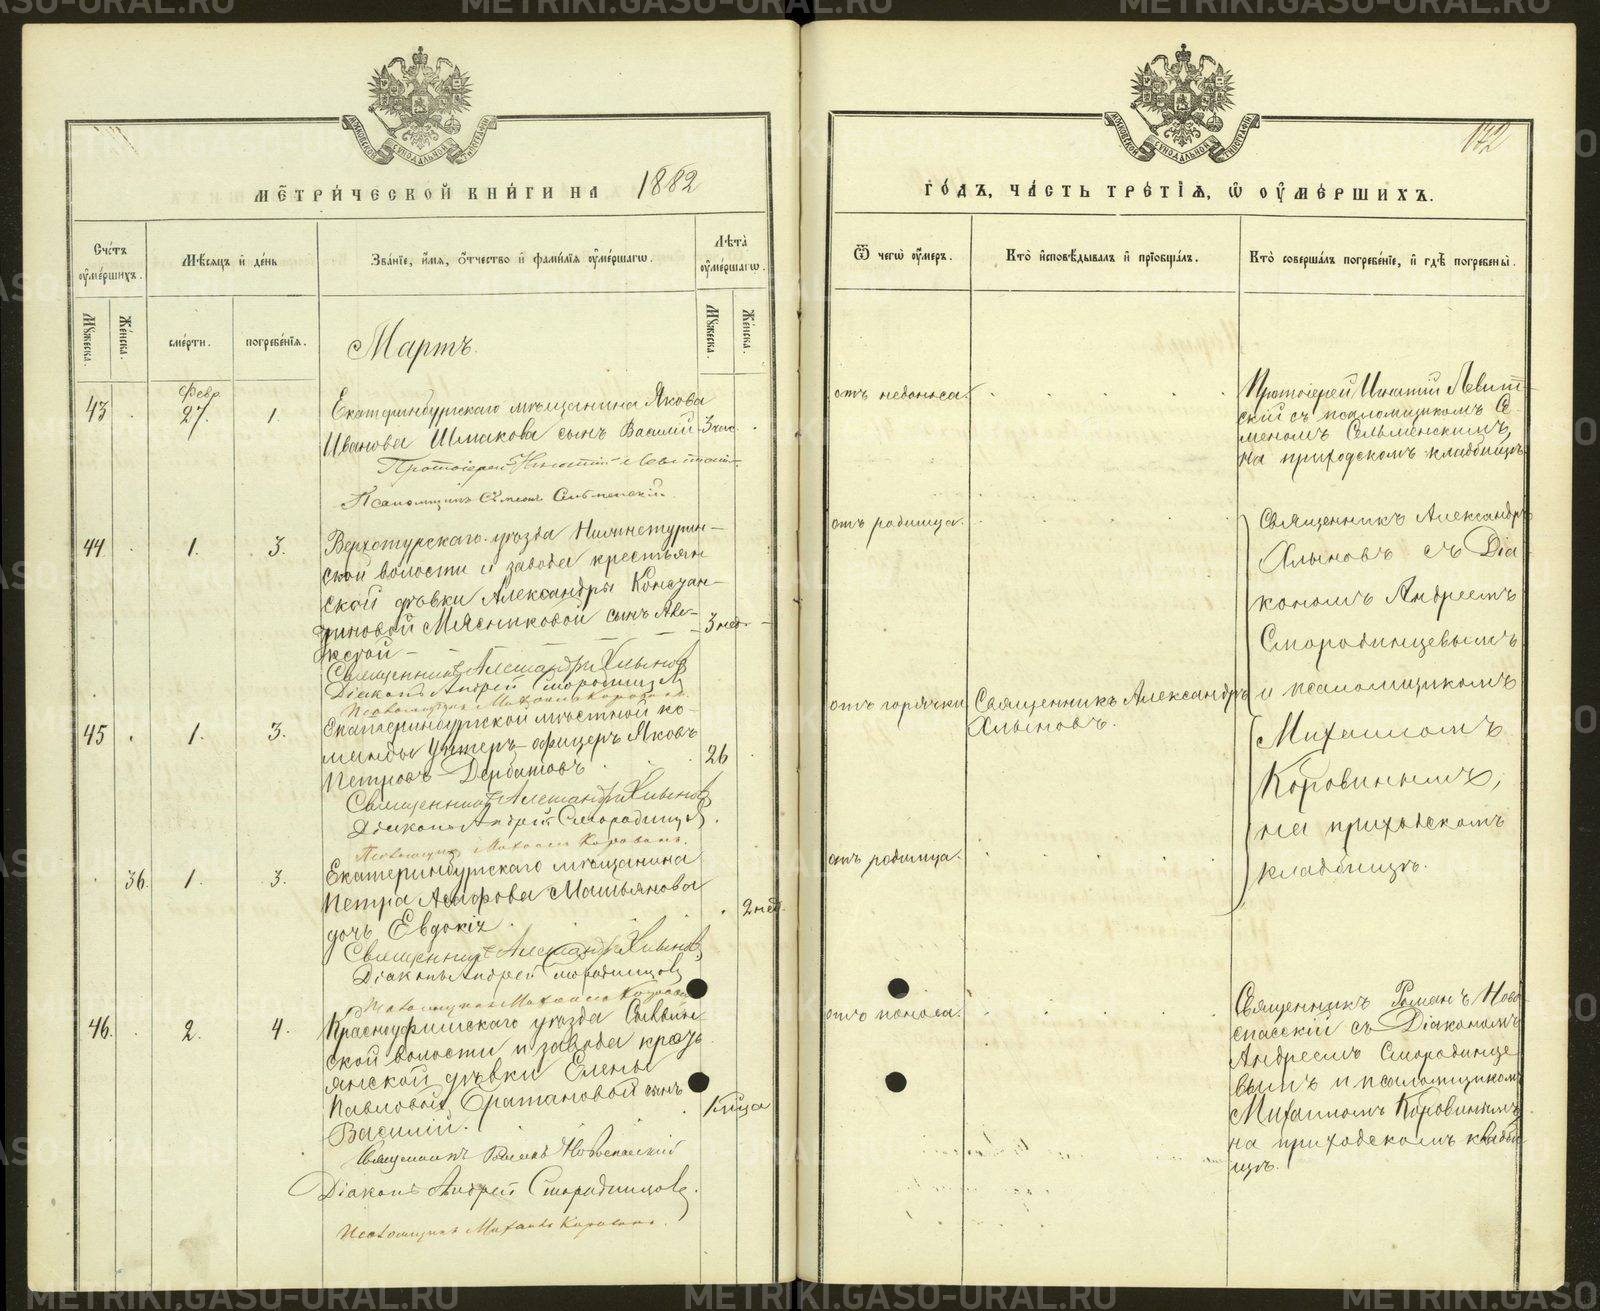 МЕТРИЧЕСКОЙ КНИГИ НА 1882
ГОДЪ, ЧАСТЬ ТРЕТІЯ, Ѡ ОУМЕРШИХЪ.
172
Счетъ оумершихъ.
Мѣсяцъ и день
Званіе, имя, отчество и фамилія оумершагѡ.
Лѣта оумершагѡ.
Ѿ чегѡ оумеръ.
Кто исповѣдывалъ и пріобщалъ.
Кто совершалъ погребеніе, и гдѣ погребены.
Мужеска.
Женска.
смерти.
погребенія.
Мужеска.
Женска.
Мартъ.
43
Февр.
27.
1.
Екатеринбургскаго мѣщанина Якова
Иванова Шмакова сынъ Василій
3 час.
Протоіерей Игнатій Левитскій
Псаломщикъ Сѵмеонъ Сельменскій
отъ недоноса.
Протоіерей Игнатій Левит-
скій съ псаломщикомъ Се-
меномъ Сельменскимъ,
на приходскомъ кладбищѣ
44.
1.
3.
Верхотурскаго уѣзда Нижнетурин-
ской волости и завода крестьян
ской дѣвки Александры Констан-
тиновой Мясниковой сынъ
3 нед.
Священникъ Александръ Хлыновъ
Діаконъ Андрей Смородинцевъ
Псаломщикъ Михаилъ Коровинъ.
отъ родимца.
Священникъ Александръ
Хлыновъ съ Діа
кономъ Андреемъ
Смородинцевымъ
и псаломщикомъ
Михаиломъ
Коровинымъ,
на приходскомъ
кладбищѣ.
45
1.
3.
Екатеринбургской мѣстной ко-
манды Унтеръ-офицеръ Яковъ
Петровъ Дербатовъ
26
Священникъ Александръ Хлыновъ
Діаконъ Андрей Смородинцевъ.
Псаломщикъ Михаилъ Коровинъ.
отъ горячки
Священникъ Александръ
Хлыновъ.
36.
1.
3.
Екатеринбургскаго мѣщанина
Петра
дочь Евдокія
2 нед.
Священникъ Александръ Хлыновъ
Діаконъ Андрей Смородинцевъ
Псаломщикъ Михаилъ Коровинъ
отъ родимца.
46.
2.
4.
Красноуфимскаго уѣзда Сылвин-
ской волости и завода кресть
янской дѣвки Елены
Павловой сынъ
Василій.
Священникъ Романъ Новоспасскій
Діаконъ Андрей Смородинцевъ.
Псаломщикъ Михаилъ Коровинъ.
отъ поноса.
Священникъ Романъ Ново-
спасскій съ Діакономъ
Андреемъ Смородинце
вымъ и псаломщикомъ
Михаиломъ Коровинымъ,
на приходскомъ кладби
щѣ.
METRIKI.GASO-URAL.RU